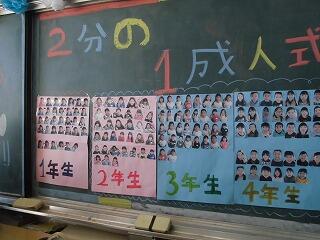 2分の
1成人式
1年生
2年生
3年生
4年生